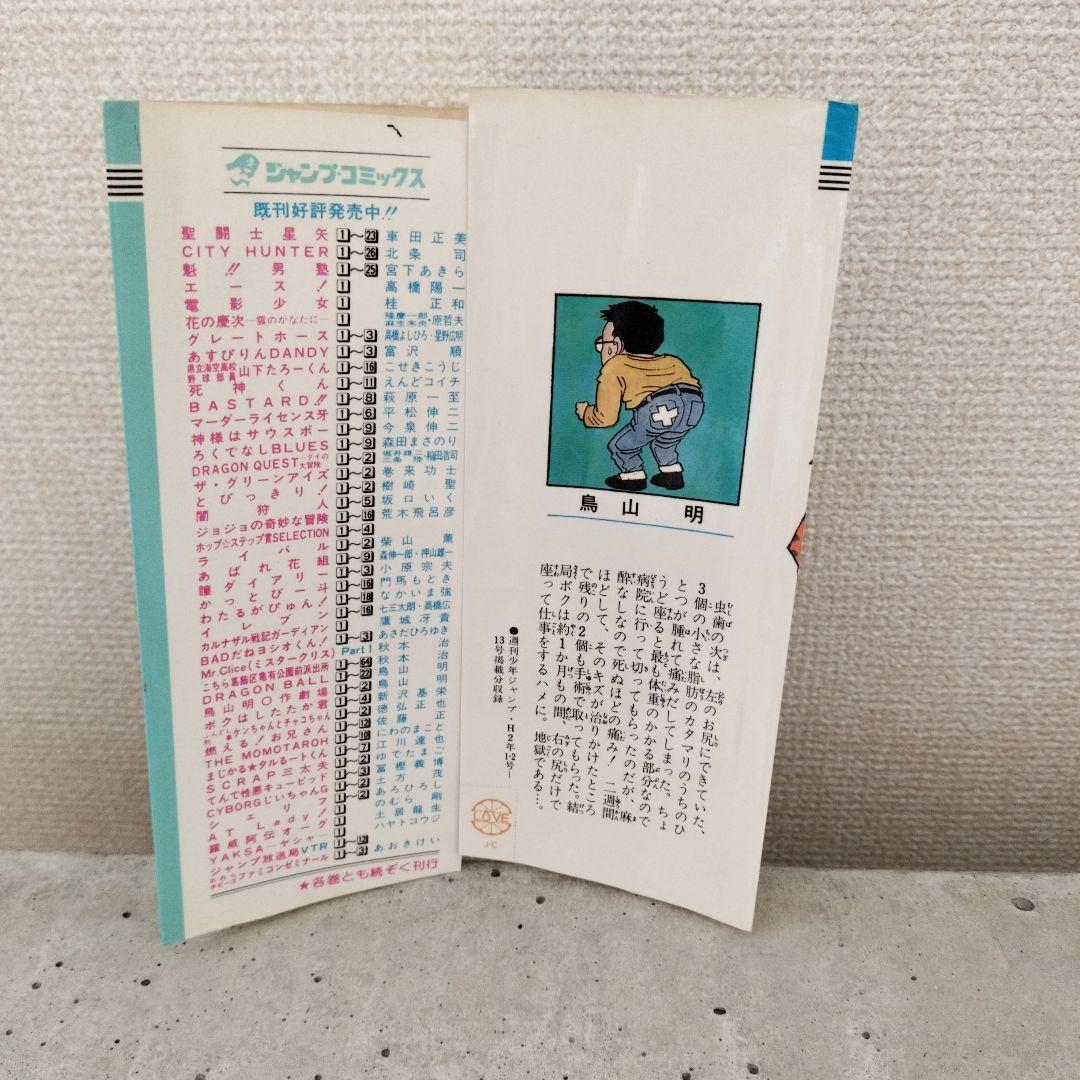 ジャンプ・コミックス
既刊好評発売中!!
聖闘士星矢 1〜23 車田正美
CITY HUNTER 1〜26 北条司
魁!!男塾 1〜25 宮下あきら
エース! 1 高橋陽一
電影少女 1 桂正和
花の慶次―雲のかなたに― 1 隆慶一郎・麻生未央・原哲夫
グレートホース 1〜3 高橋よしひろ・星野広明
あすぴりんDANDY 1〜3 富沢順
県立海空高校野球部員山下たろーくん 1〜16 こせきこうじ
死神くん 1〜11 えんどコイチ
BASTARD!! 1〜8 萩原一至
マーダーライセンス牙 1〜6 平松伸二
神様はサウスポー 1〜9 今泉伸二
ろくでなしBLUES 1〜9 森田まさのり
DRAGON QUEST ダイの大冒険 1〜2 堀井雄二・三条陸・稲田浩司
ザ・グリーンアイズ 1〜2 巻来功士
とびっきり! 1〜2 樹崎聖
闇狩人 1〜5 坂口いく
ジョジョの奇妙な冒険 1〜16 荒木飛呂彦
ホップ☆ステップ賞SELECTION 1〜4
ライバル 1〜2 柴山薫
あばれ花組 1〜9 森伸一郎・押山雄一
瞳ダイアリー 1〜3 小原宗夫
かっとび一斗 1〜16 門馬もとき
わたるがぴゅん! 1〜18 なかいま強
イレブン 1〜16 七三太朗・高橋広
カルナザル戦記ガーディアン 1 鷹城冴貴
BADだねヨシオくん! 1〜3 あさだひろゆき
Mr.Clice(ミスタークリス) Part1 秋本治
こちら葛飾区亀有公園前派出所 1〜64 秋本治
DRAGON BALL 1〜22 鳥山明
鳥山明○作劇場 1〜2 鳥山明
ボクはしたたか君 1〜4 新沢基栄
ふんどし刑事ケンちゃんとチャコちゃん 徳弘正也
燃える!お兄さん 1〜12 佐藤正
THE MOMOTAROH 1〜10 にわのまこと
まじかる★タルるートくん 1〜7 江川達也
SCRAP三太夫 1〜2 ゆでたまご
てんで性悪キューピッド 1〜3 冨樫義博
CYBORGじいちゃんG 1〜2 土方茂
シェリフ 1 あろひろし
AT Lady! 1 のむら剛
羅威阿伝オーグ 1 土居龍生
YAKSA―ヤシャ― 1 ハヤトコウジ
ジャンプ放送局VTR 1〜12
ファミコンゼミナール 1〜3 あおきけい
★各巻とも続ぞく刊行
鳥山明
虫歯の次は、左のお尻にできていた、
3個の小さな脂肪のカタマリのうちのひ
とつが腫れて痛みだしてしまった。ちょ
うど座ると最も体重のかかる部分なので
病院に行って切ってもらったのだが、麻
酔なしなので死ぬほどの痛み! 二週間
ほどして、そのキズが治りかけたところ
で残りの2個も手術で取ってもらった。結
局ボクは約1か月もの間、右の尻だけで
座って仕事をするハメに。地獄である…。
●週刊少年ジャンプ・H2年1・2号〜
13号掲載分収録
LOVE
J・C